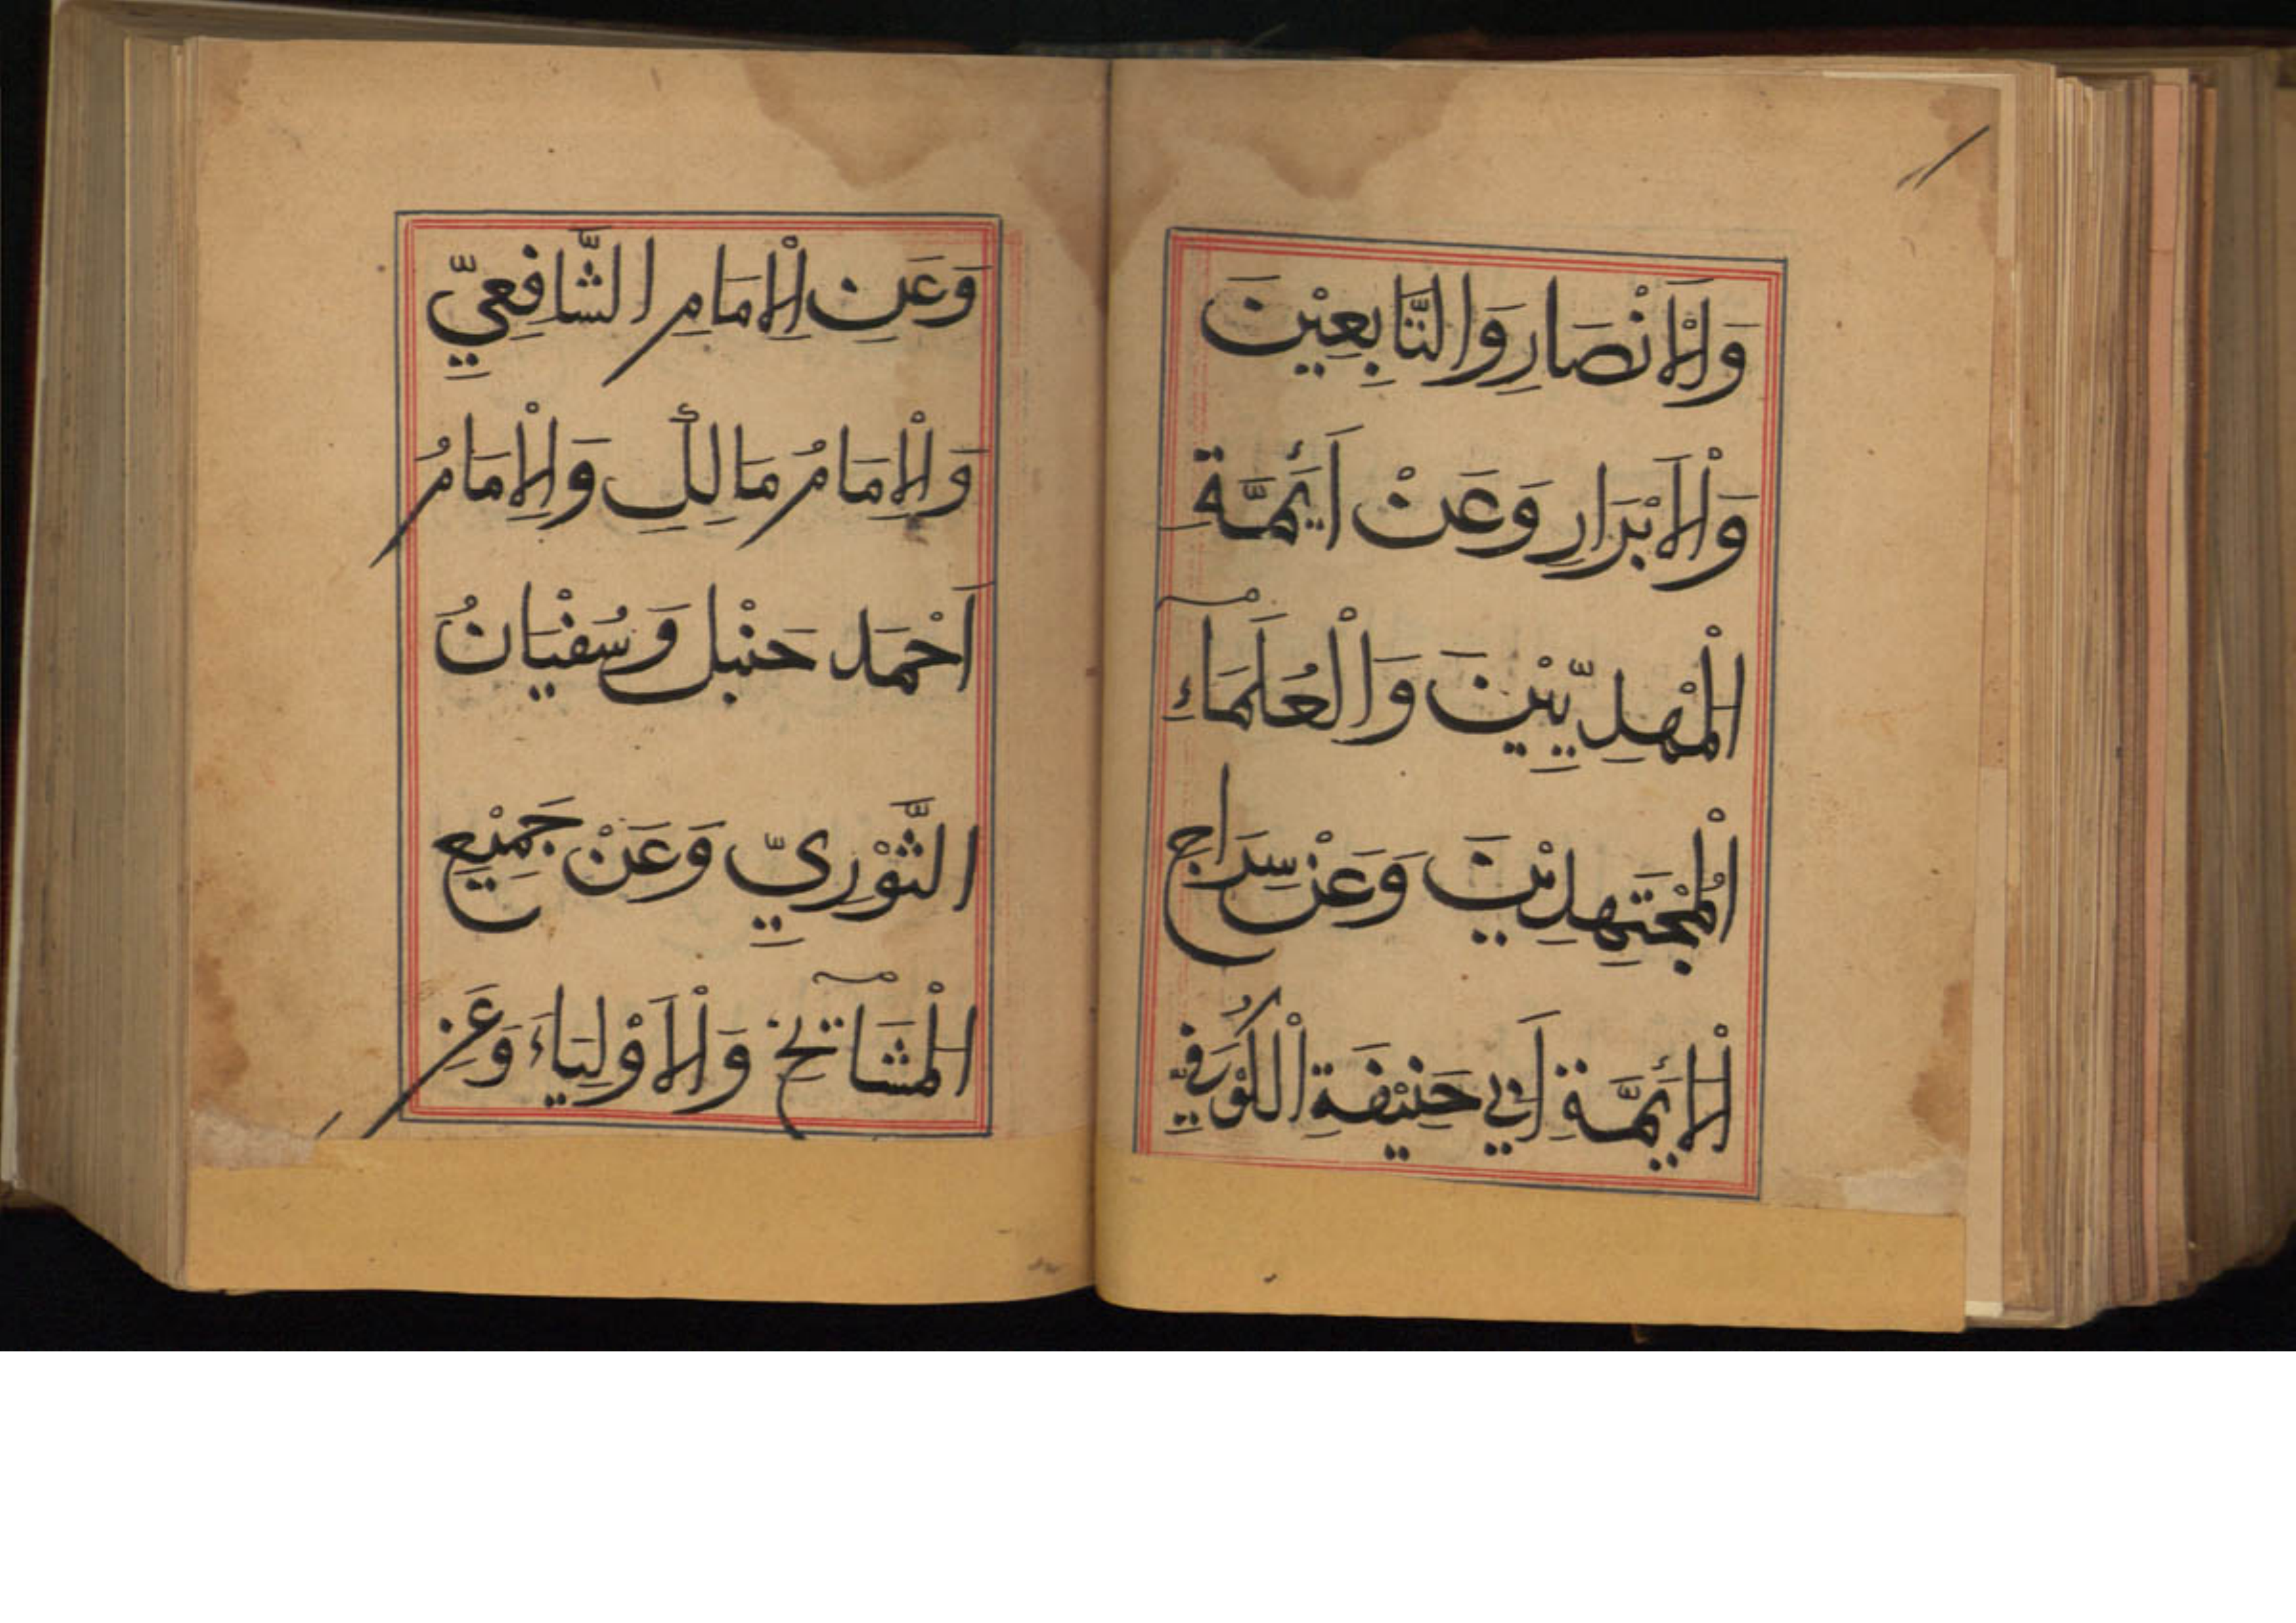 وَالْاَنْصَارِ وَالتَّابِعِيْنَ
وَالْاَبْرَارِ وَعَنْ اَئِمَّةِ
الْمَهْدِيِّيْنَ وَالْعُلَمَآءِ
الْمُجْتَهِدِيْنَ وَعَنْ سِرَاجِ
الْاَئِمَّةِ اَبِي حَنِيْفَةِ الْكُوْفِيِّ
وَعَنِ الْاِمَامِ الشَّافِعِيِّ
وَالْاِمَامُ مَالِكِ وَالْاِمَامُ
اَحْمَد حَنْبل وَسُفْيَانُ
الثَّوْرِيِّ وَعَنْ جَمِيْعِ
الْمَشَآئِخِ وَالْاَوْلِيَاءَ وَعَنِ